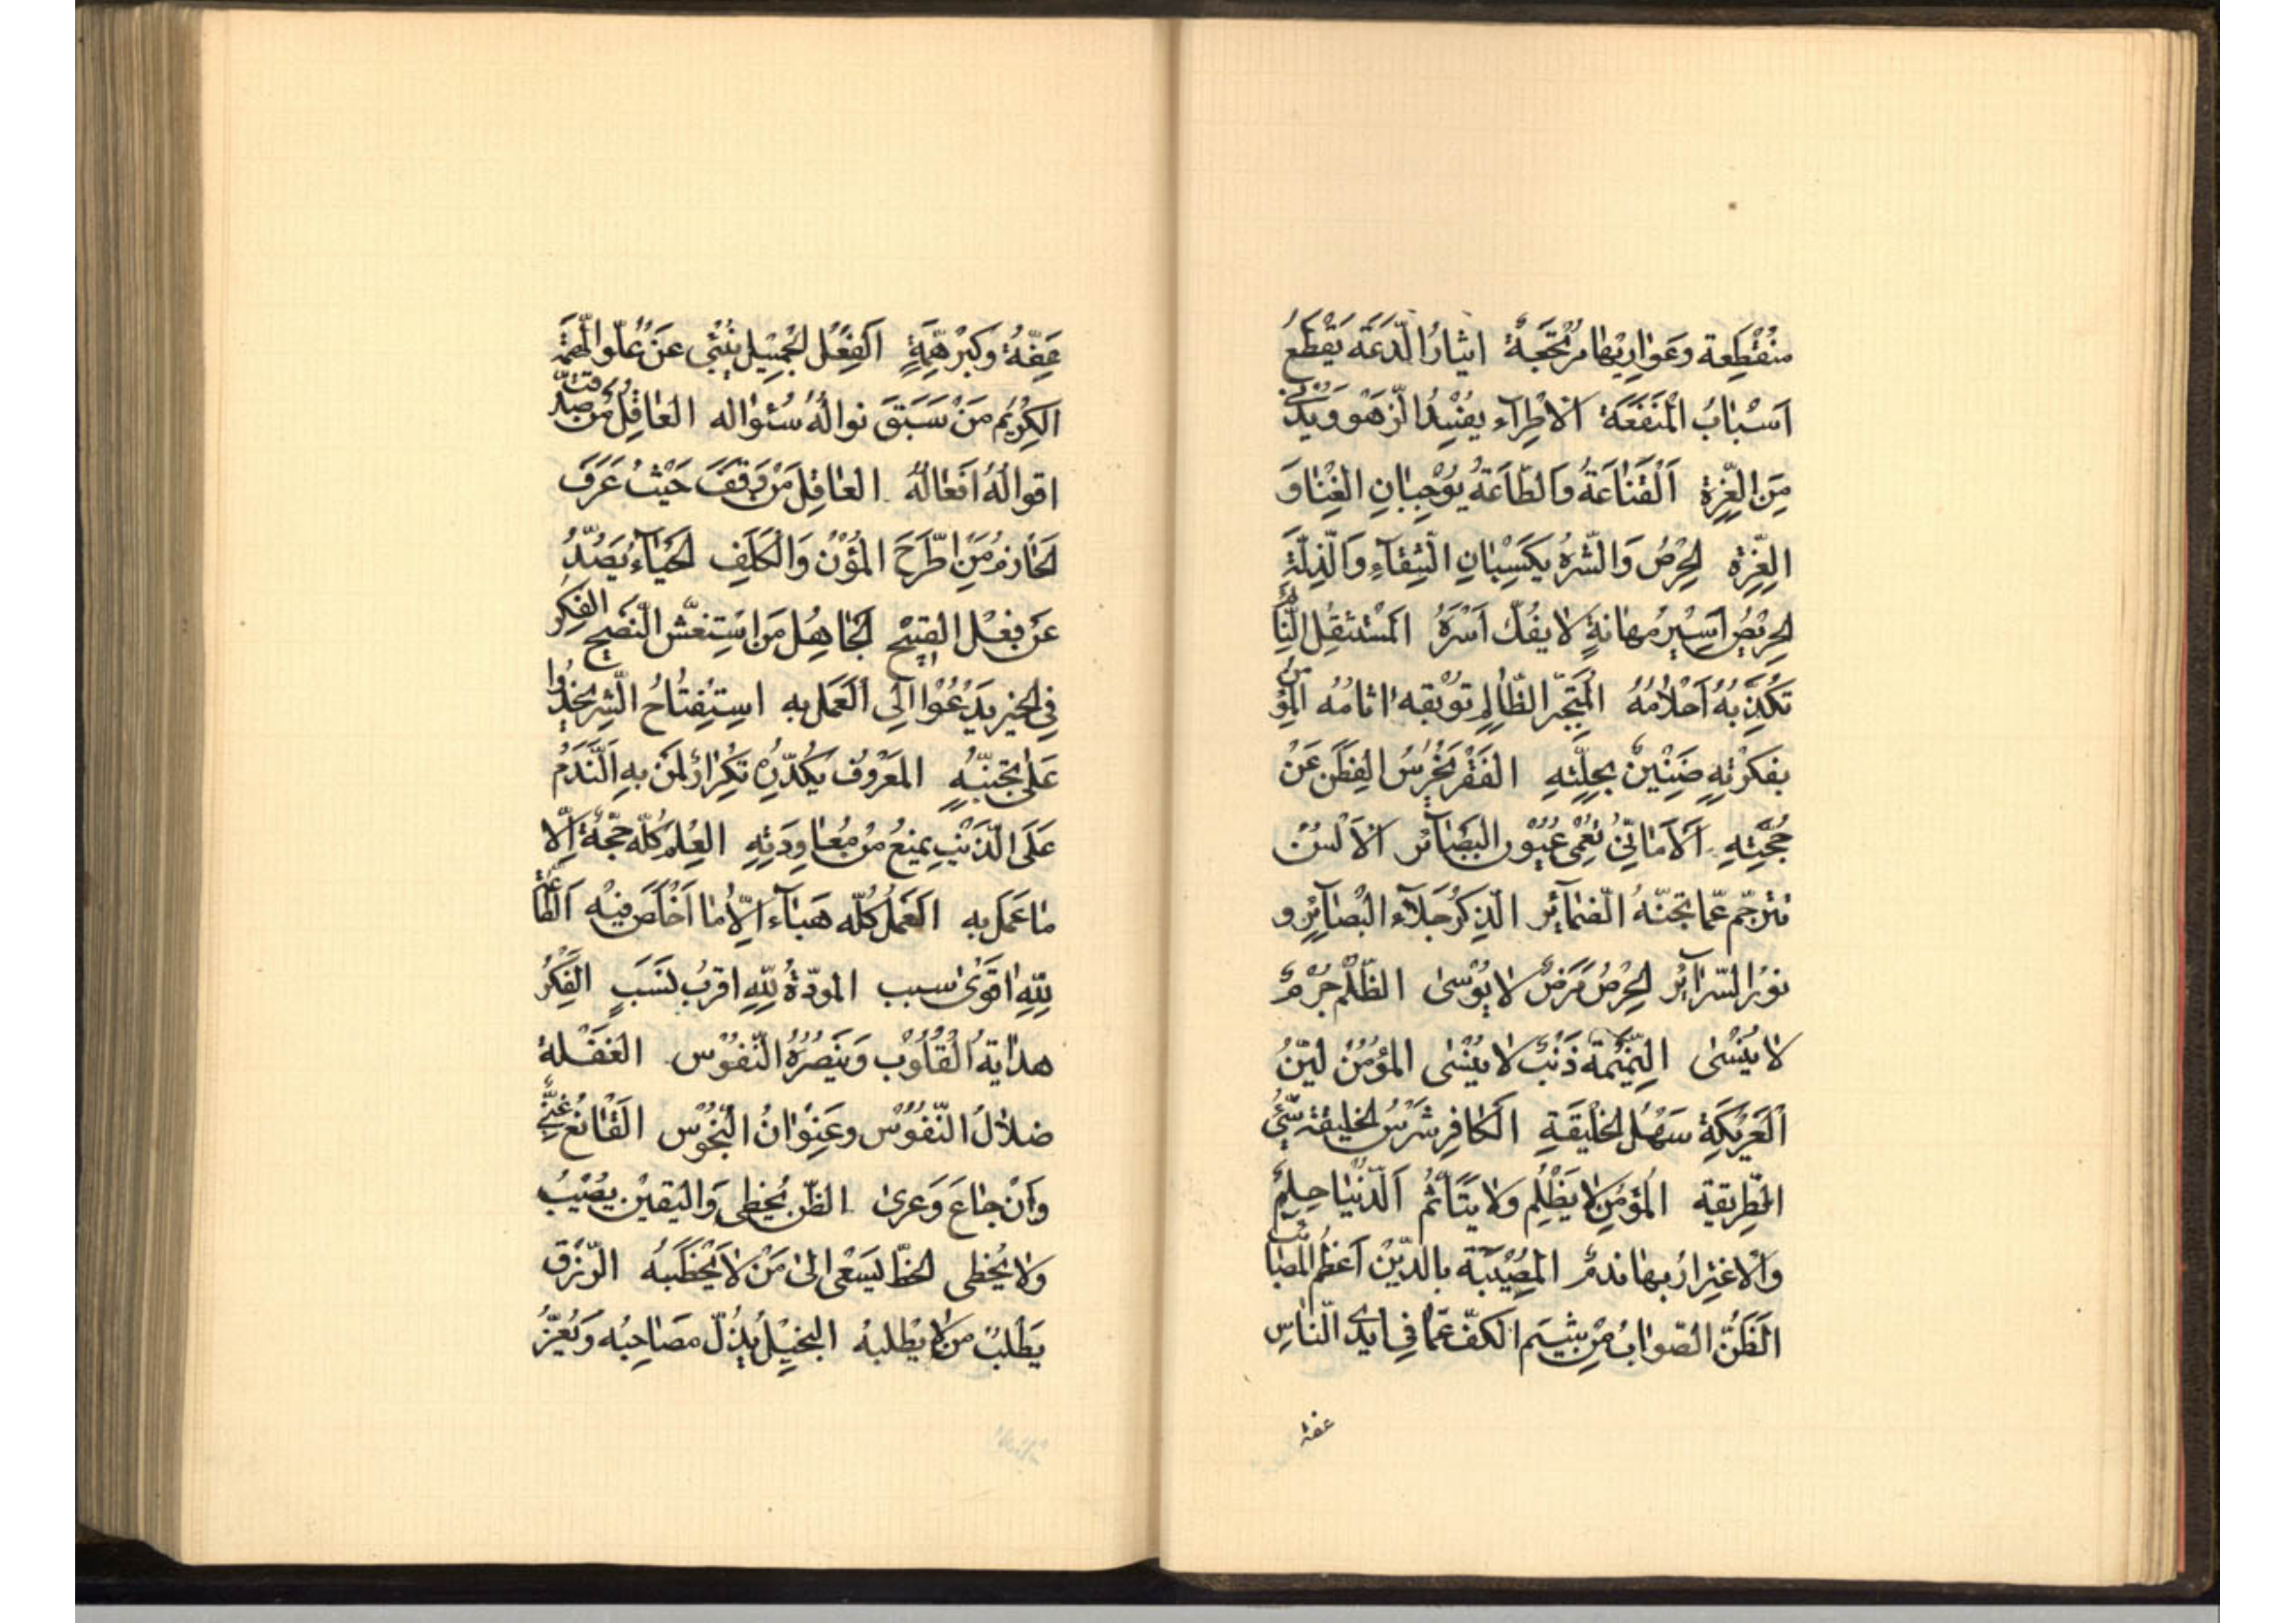 منْقَطِعة وعَوارِيْها مُرْتَجَعَة ايثارُ الدَّعَة يَقْطَعُ
اَسْبٰابُ الْمَنْفَعَة الاْطِراء يفْسِدُ الزّهَو وَيُدْنى
مِنَ الغِرّة اَلْقَنٰاعَةُ وَالطّاعَةُ يُوْجِبٰانِ الغِنٰا وَ
العِزّة الحِرْصُ وَالشّرهُ يكَسِبْانِ الشّقآءِ وَالّذِلّةَ
الحِريْصُ اَسِيْرُ مهٰانةٍ لا يفُكّ اَسْرَهُ المسْتثقِل النّٰائم
تكَذِّبهُ اَحْلامُهُ المُتَجَبّر الظّالِم توبْقهُ اثٰامُهُ المُؤمن
بفكرْتهِ ضَنِيْنٌ بخلّتهِ الفَقْر يخْرِسُ الفِطَن عَنْ
حُجّتِهِ اَلاَمٰانىّ تُعْمى عُيُون البَصٰآئر الاَلْسُنْ
تترجّم عّما تجنّهُ الضّمٰآئر الذِكْر جَلآء البْصٰآئر و
نوُر السّرآئر الحِرْصُ مَرَضٌ لا يُوْسىٰ الظّلْم جُرْمٌ
لا يُنْسىٰ النّمِيْمَة ذَنْبٌ لا يُنْسٰى المؤُمنْ ليّنُ
الْعَرْيكَةِ سَهْلُ الخَلْيقَةِ الكٰافِر شَرْسُ الخليقةِ سّيّئ
الطّريقة المُؤمن لا يَظْلِم ولا يتَأثّم الدّنْيٰا حلمٌ
وَالاغتِرارُ بهٰا ندمٌ المُصِيْبَة بالدّيْن اَعْظم المصٰائب
الَظَنّ الصّوٰابُ مِنْ شِيَم الكفّ عمّا فى ايدى النّاسِ
عفة
عِفّةُ وَكِبْر هِمّةٍ اَلفِعْل الجَميْل يُنْبئ عَنْ عُلوّ الهِمّة
الكِريمُ مَنْ سَبَقَ نوالُهُ سُئوٰاله العٰاقِلُ مَنْ صدّقت
اقوالُهُ اَفعٰالُهُ العٰاقِل مَنْ وَقَفَ حَيْثُ عَرَفَ
الحٰازمُ مَنِ اطّرَحَ المُؤنْ وَالْكلَفِ الحَيٰآء يَصُدّ
عَن فِعْل القبيْح الجٰاهِل مَن اسْتغشّ النّصْيح الفِكر
فى الخير يَدْعُوا الى العَمَل به اسِتِفْتٰاحُ الشّر يحْدُوا
عَلىٰ تجنّبهِ المَعْرُوف يكدّرهُ تكْرٰار المَن بهِ النّدَمُ
عَلَى الذّنْب يمنعُ مْن مُعٰاودَتهِ العِلم كُلّه حجّة اِلّا
مٰا عَمل به العَمل كُلّه هَبٰآء اِلّا مٰا اَخْلصَ فيْه الطّاعة
للّهِ اقْوىٰ سبب المودّةُ للّهِ اقربُ نَسَبٍ الفِكرُ
هدٰايةُ القُلُوْب وَتبصُرهُ النّفوُس الغَفْلة
ضلالُ النّفُوْس وعَنْوٰانُ النّحُوْس القٰانعُ غنىٌّ
وَاِنْ جٰاعَ وَعَرىٰ الظّن يُخطى وَاليَقيْن يصُيْبُ
وَلا يُخْطى الحظّ يَسَعْى الىٰ مَنْ لا يَخْطبَهُ الرّزق
يَطلُبُ من لا يطْلبهُ البخيْل يذلّ مصَاحِبُه وَيُعزّ